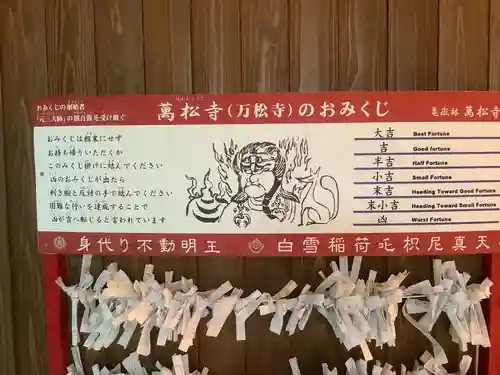 おみくじの創始者
「元三大師」の観自戒を受け継ぐ
萬松寺(万松寺)のおみくじ
亀嶽林 萬松寺
おみくじは粗末にせず
お持ち帰りいただくか
このみくじ掛けに結んでください
凶のおみくじが出たら
利き腕と反対の手で結んでください
困難な行いを達成することで
凶が吉へ転じると言われています
大吉 Best Fortune
吉 Good Fortune
半吉 Half Fortune
小吉 Small Fortune
末吉 Heading Toward Good Fortune
末小吉 Heading Toward Small Fortune
凶 Worst Fortune
身代り不動明王
白雪稲荷吒枳尼真天